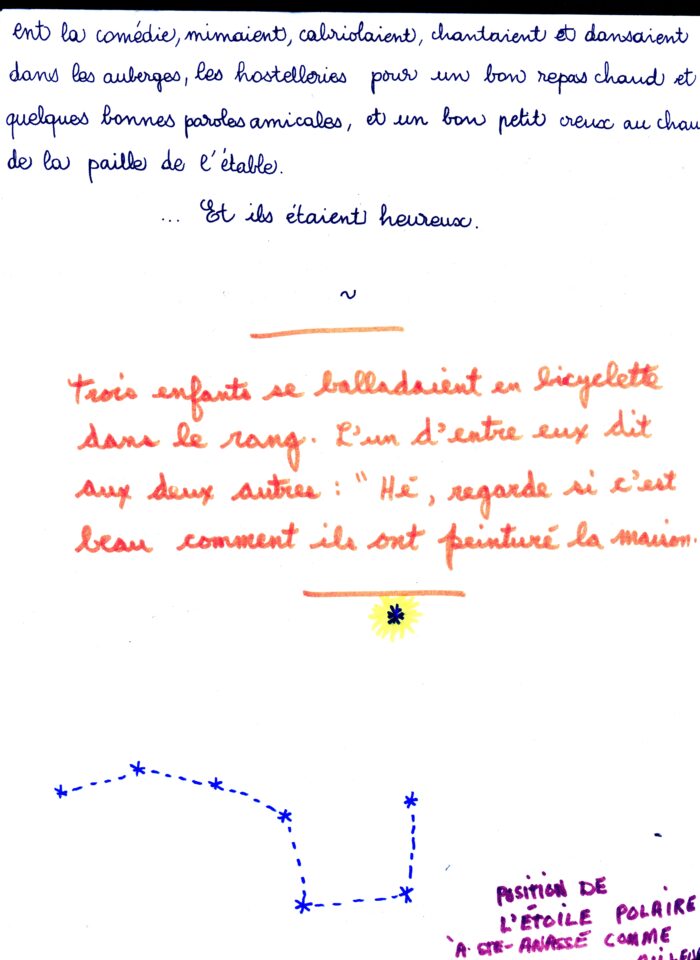 ent la comédie, mimaient, cabriolaient, chantaient et dansaient
dans les auberges, les hostelleries pour un bon repas chaud et
quelques bonnes paroles amicales, et un bon petit creux au chau
de la paille de l'étable.
... Et ils étaient heureux.
~
Trois enfants se balladaient en bicyclette
dans le rang. L'un d'entre eux dit
aux deux autres : "Hé, regarde si c'est
beau comment ils ont peinturé la maison.
POSITION DE
L'ÉTOILE POLAIRE
À STE-ANASSE COMME